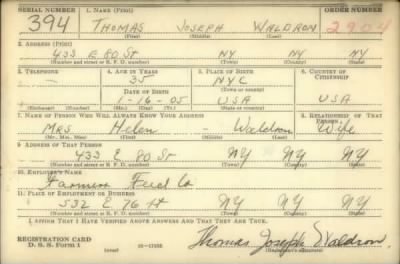 SERIAL NUMBER 1. NAME (Print) ORDER NUMBER
394 THOMAS JOSEPH WALDRON 2904
(First) (Middle) (Last)
2. ADDRESS (Print)
433 E 80 ST NY NY
(Number and street or R. F. D. number) (Town or county) (State)
3. TELEPHONE 4. AGE IN YEARS 5. PLACE OF BIRTH 6. COUNTRY OF CITIZENSHIP
35 NYC
DATE OF BIRTH (Town or county)
-16-05 USA USA
(Exchange) (Number) (Mo.) (Day) (Yr.) (State or country)
7. NAME OF PERSON WHO WILL ALWAYS KNOW YOUR ADDRESS 8. RELATIONSHIP OF THAT PERSON
Mrs. Helen - Waldron Wife
(Mr., Mrs., Miss) (First) (Middle) (Last)
9. ADDRESS OF THAT PERSON
433 E. 80 St NY NY
(Number and street or R. F. D. number) (Town or county) (State)
10. EMPLOYER'S NAME
Farmers Feed Co
11. PLACE OF EMPLOYMENT OR BUSINESS
532 E. 76 St NY NY
(Number and street or R. F. D. number) (Town or county) (State)
I AFFIRM THAT I HAVE VERIFIED ABOVE ANSWERS AND THAT THEY ARE TRUE.
REGISTRATION CARD
D. S. S. FORM 1 (over) 16-17105 Thomas Joseph Waldron